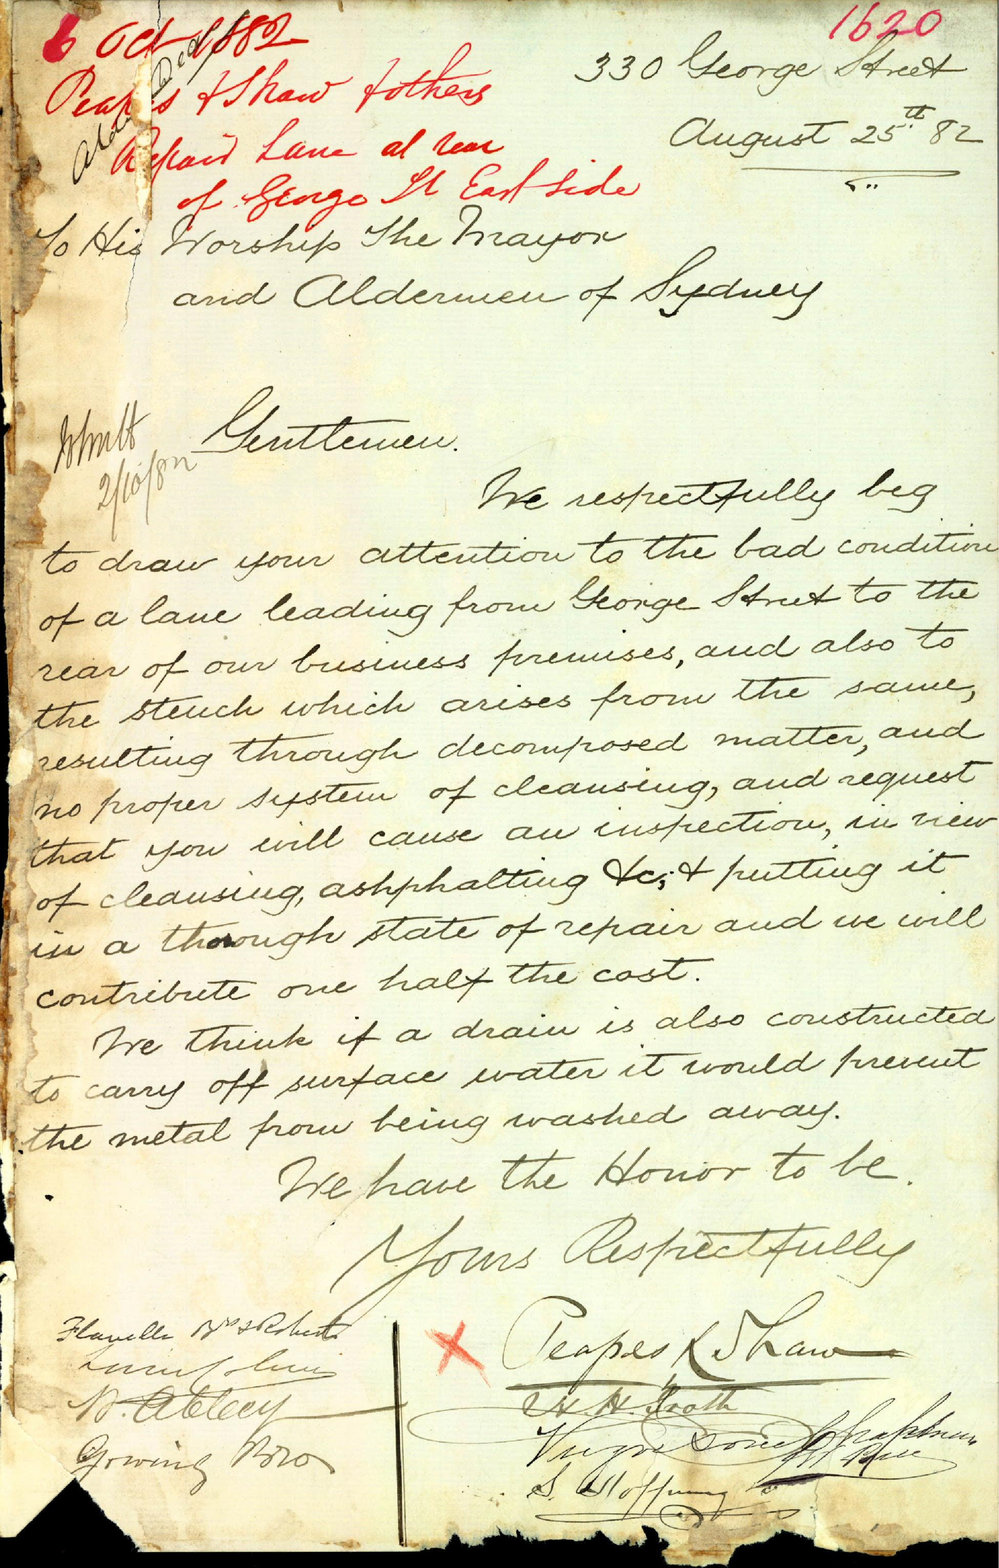 1620
6 Oct 1882
Peapes & Shaw & others
Repair Lane at rear
of George St East Side
330 George Street
August 25th 82
To His Worship The Mayor
and Aldermen of Sydney
Gentlemen.
2/10/82
We respectfully beg
to draw your attention to the bad condition
of a lane leading from George Street to the
rear of our business premises, and also to
the stench which arises from the same,
resulting through decomposed matter, and
no proper system of cleansing, and request
that you will cause an inspection, in view
of cleansing, ashphalting &c; & putting it
in a thorough state of repair and we will
contribute one half the cost.
We think if a drain is also constructed
to carry off surface water it would prevent
the metal from being washed away.
We have the Honor to be.
Yours Respectfully
Peapes & Shaw
S. Hoffnung
Flavelle Bros & Roberts
Gowing Bros